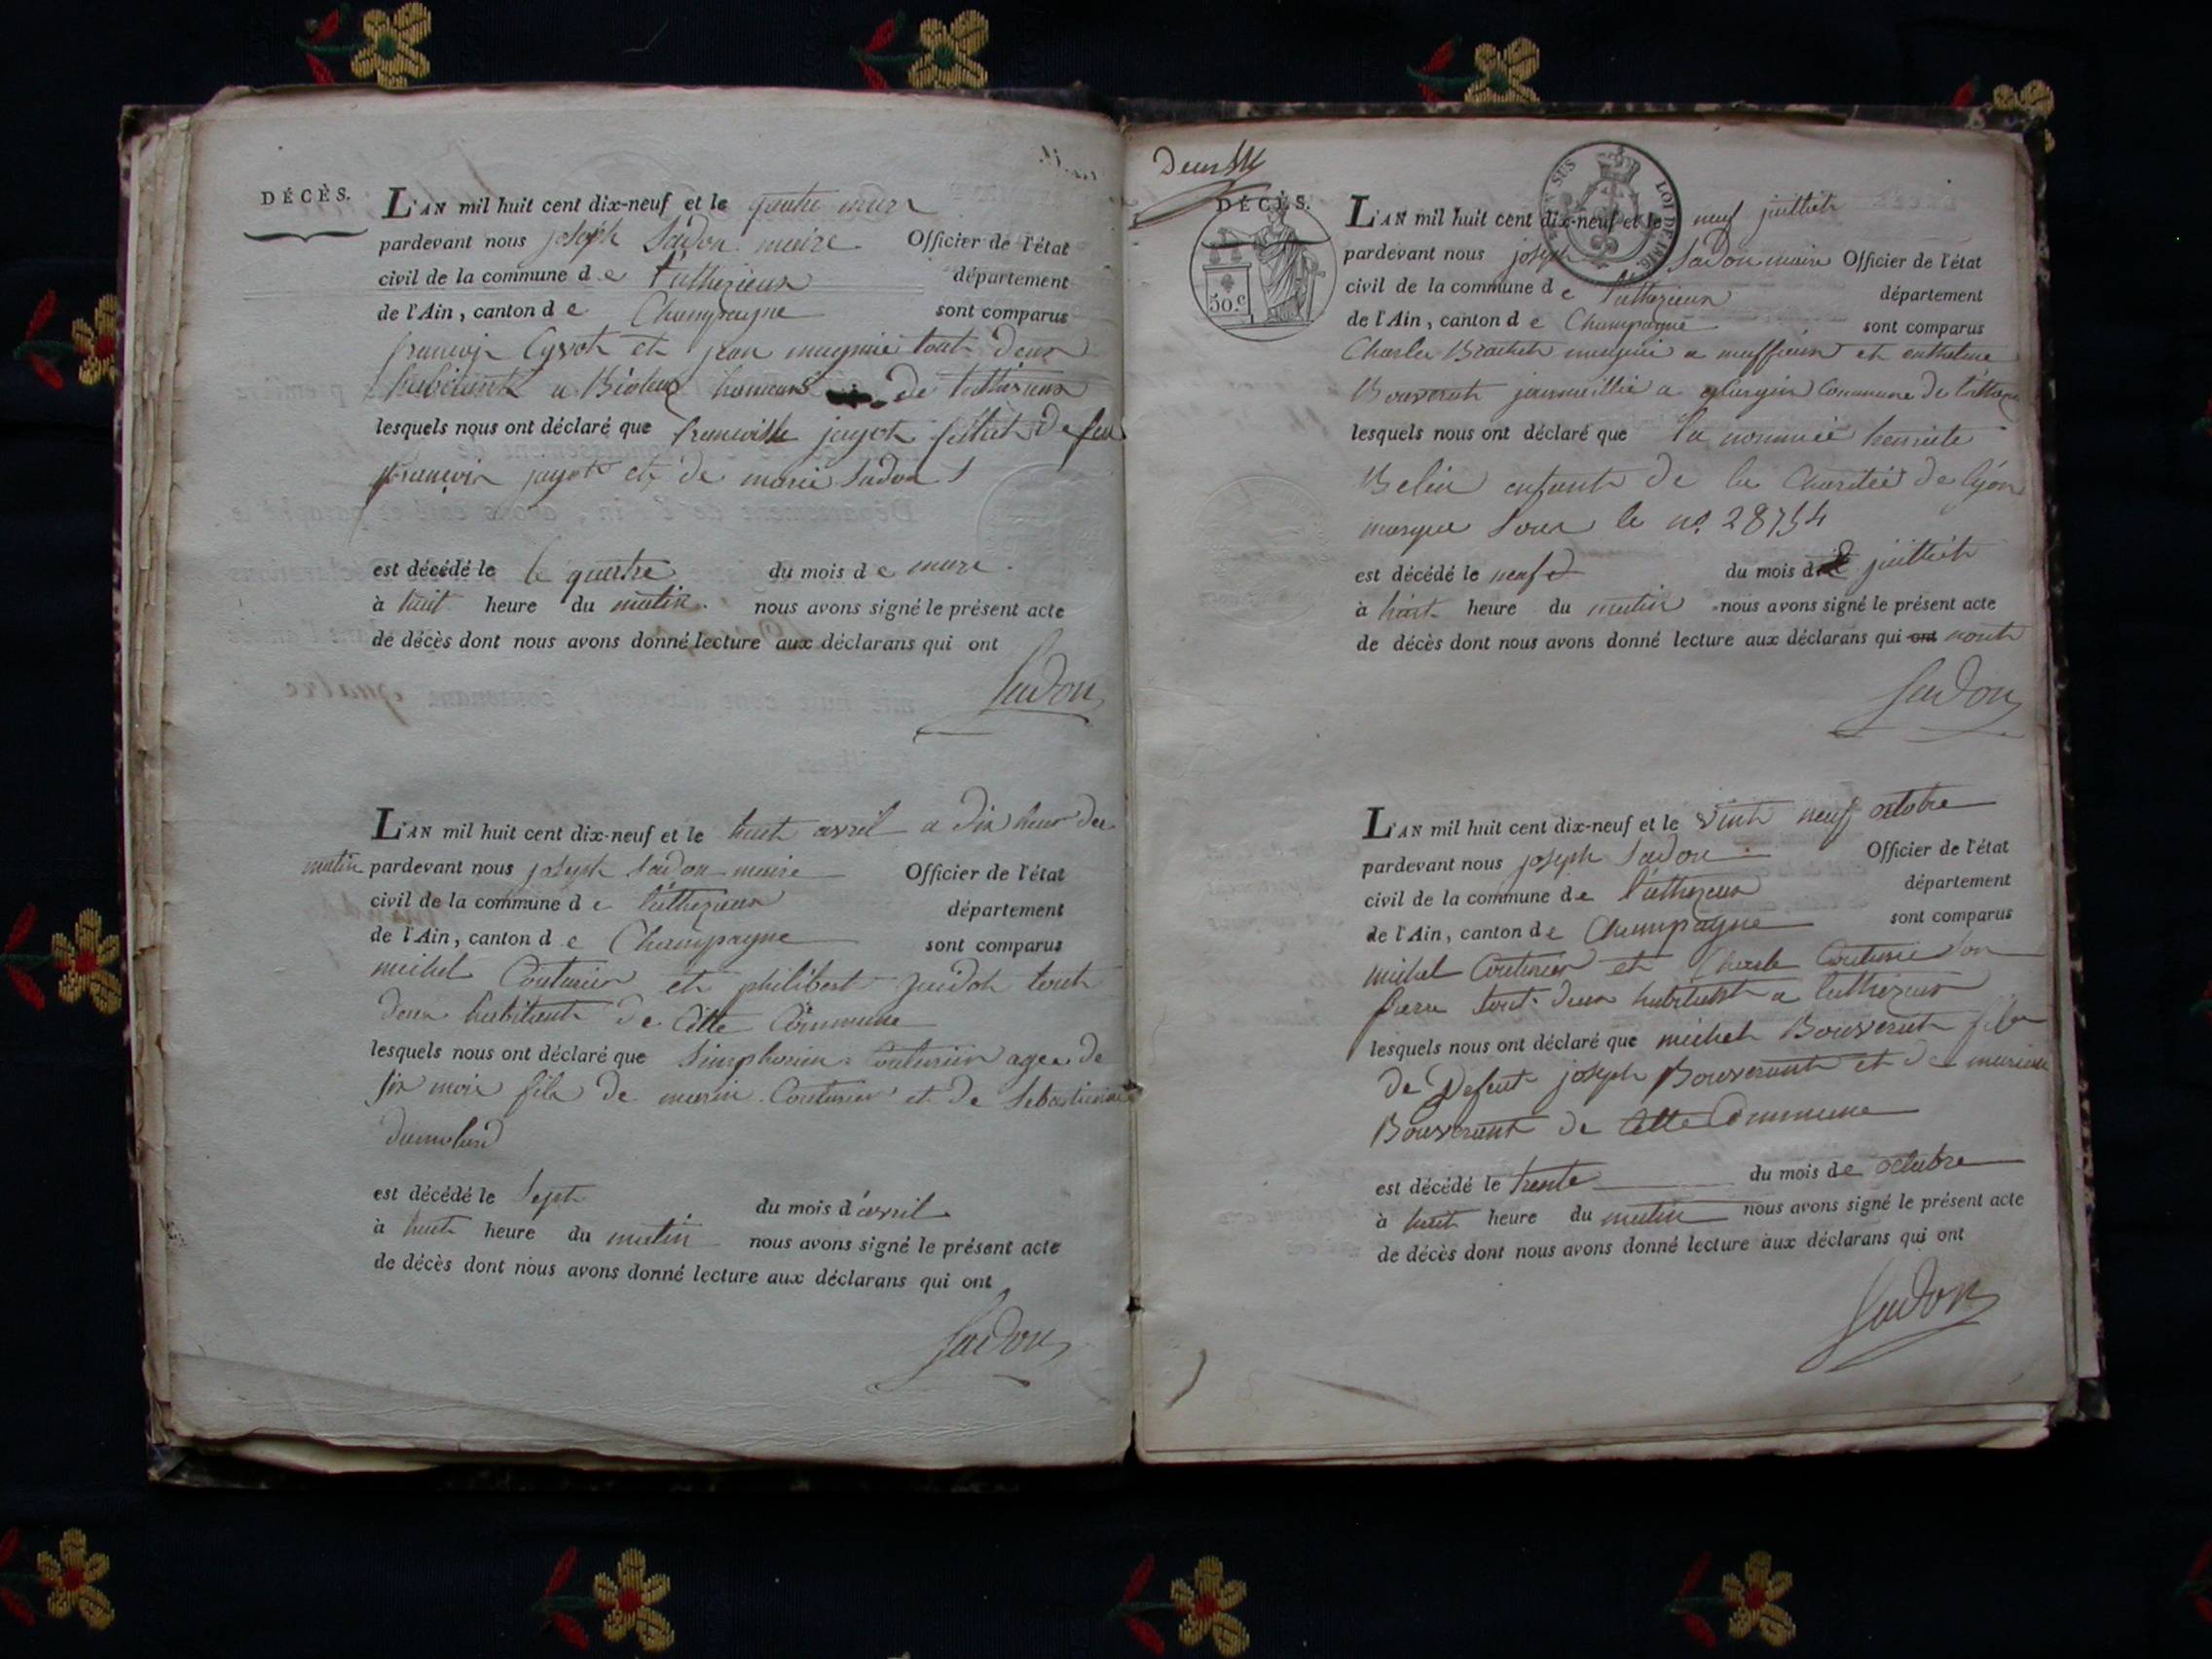 DÉCÈS.
L'AN mil huit cent dix-neuf et le quatre mars
pardevant nous joseph Sadon maire Officier de l'état
civil de la commune de Luthezieux département
de l'Ain, canton de Champagne sont comparus
françois et jean tout deux
habitant a de luthezieux
lesquels nous ont déclaré que jayot de feu
françois jayot et de marie Sadon
est décédé le le quatre du mois de mars
à huit heure du matin. nous avons signé le présent acte
de décès dont nous avons donné lecture aux déclarans qui ont
Sadon
L'AN mil huit cent dix-neuf et le huit avril a dix heur du
matin pardevant nous joseph Sadon maire Officier de l'état
civil de la commune de luthezieux département
de l'Ain, canton de Champagne sont comparus
michel Couturier et philibert tout
deux habitant de cette Commune
lesquels nous ont déclaré que Simphorien Couturier agee de
six mois fils de marin Couturier et de Sebastienne
dumolard
est décédé le Sept du mois d'avril
à huit heure du matin nous avons signé le présent acte
de décès dont nous avons donné lecture aux déclarans qui ont
Sadon
DÉCÈS.
50.c
LOI DE 1816
L'AN mil huit cent dix-neuf et le neuf juilliet
pardevant nous joseph Sadon maire Officier de l'état
civil de la commune de luthezieux département
de l'Ain, canton de Champagne sont comparus
Charles Brachet a et
Bouverat a Commune de
lesquels nous ont déclaré que la nommée
Belin enfant de la Charitée de lyon
marque Sous le no. 28754
est décédé le neuf du mois de juilliet
à huit heure du matin nous avons signé le présent acte
de décès dont nous avons donné lecture aux déclarans qui ont nont
Sadon
L'AN mil huit cent dix-neuf et le vint neuf octobre
pardevant nous joseph Sadon Officier de l'état
civil de la commune de luthezieux département
de l'Ain, canton de Champagne sont comparus
michel Couturier et Charle Couturie son
frere tout deux habitant a luthezieux
lesquels nous ont déclaré que michel Bouverat fils
de Defeut joseph Bouverant et de
Bouverant de Cette Commune
est décédé le trente du mois de octobre
à huit heure du matin nous avons signé le présent acte
de décès dont nous avons donné lecture aux déclarans qui ont
Sadon